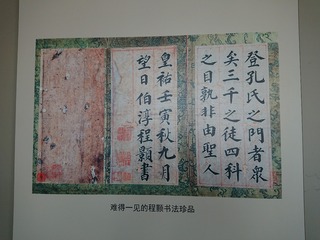 登孔氏之門者衆
矣三千之徒四科
之目孰非由聖人
皇祐壬寅秋九月
望日伯淳程顥書
难得一见的程颢书法珍品